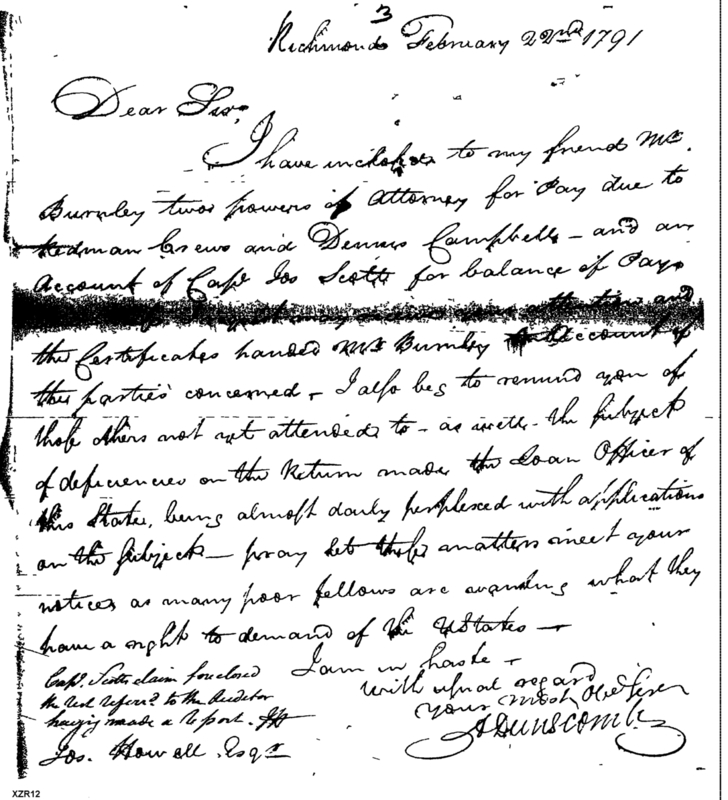 3
Richmond February 22nd 1791
Dear Sir,
I have inclosed to my friend Mr.
Burnley two powers of Attorney for Pay due to
Redman Crews and Dennis Campbell — and an
Account of Capt Jos Scott for balance of Pay
may attention and
the Certificates handed Mr Burnley on Account of
the parties concerned — I also beg to remind you of
those others not yet attended to — as well the subject
of deficiencies on the Return made the Loan Officer of
this State, being almost daily perplexed with applications
on the subject — pray let these matters meet your
notice as many poor fellows are wanting what they
have a right to demand of the UStates —
I am in haste
with usual regard
your most Obed Serv
ADunscomb
Capt. Scotts claim foreclosed
the to the Auditor
having made a report. JH
Jos. Howell Esqr
XZR12